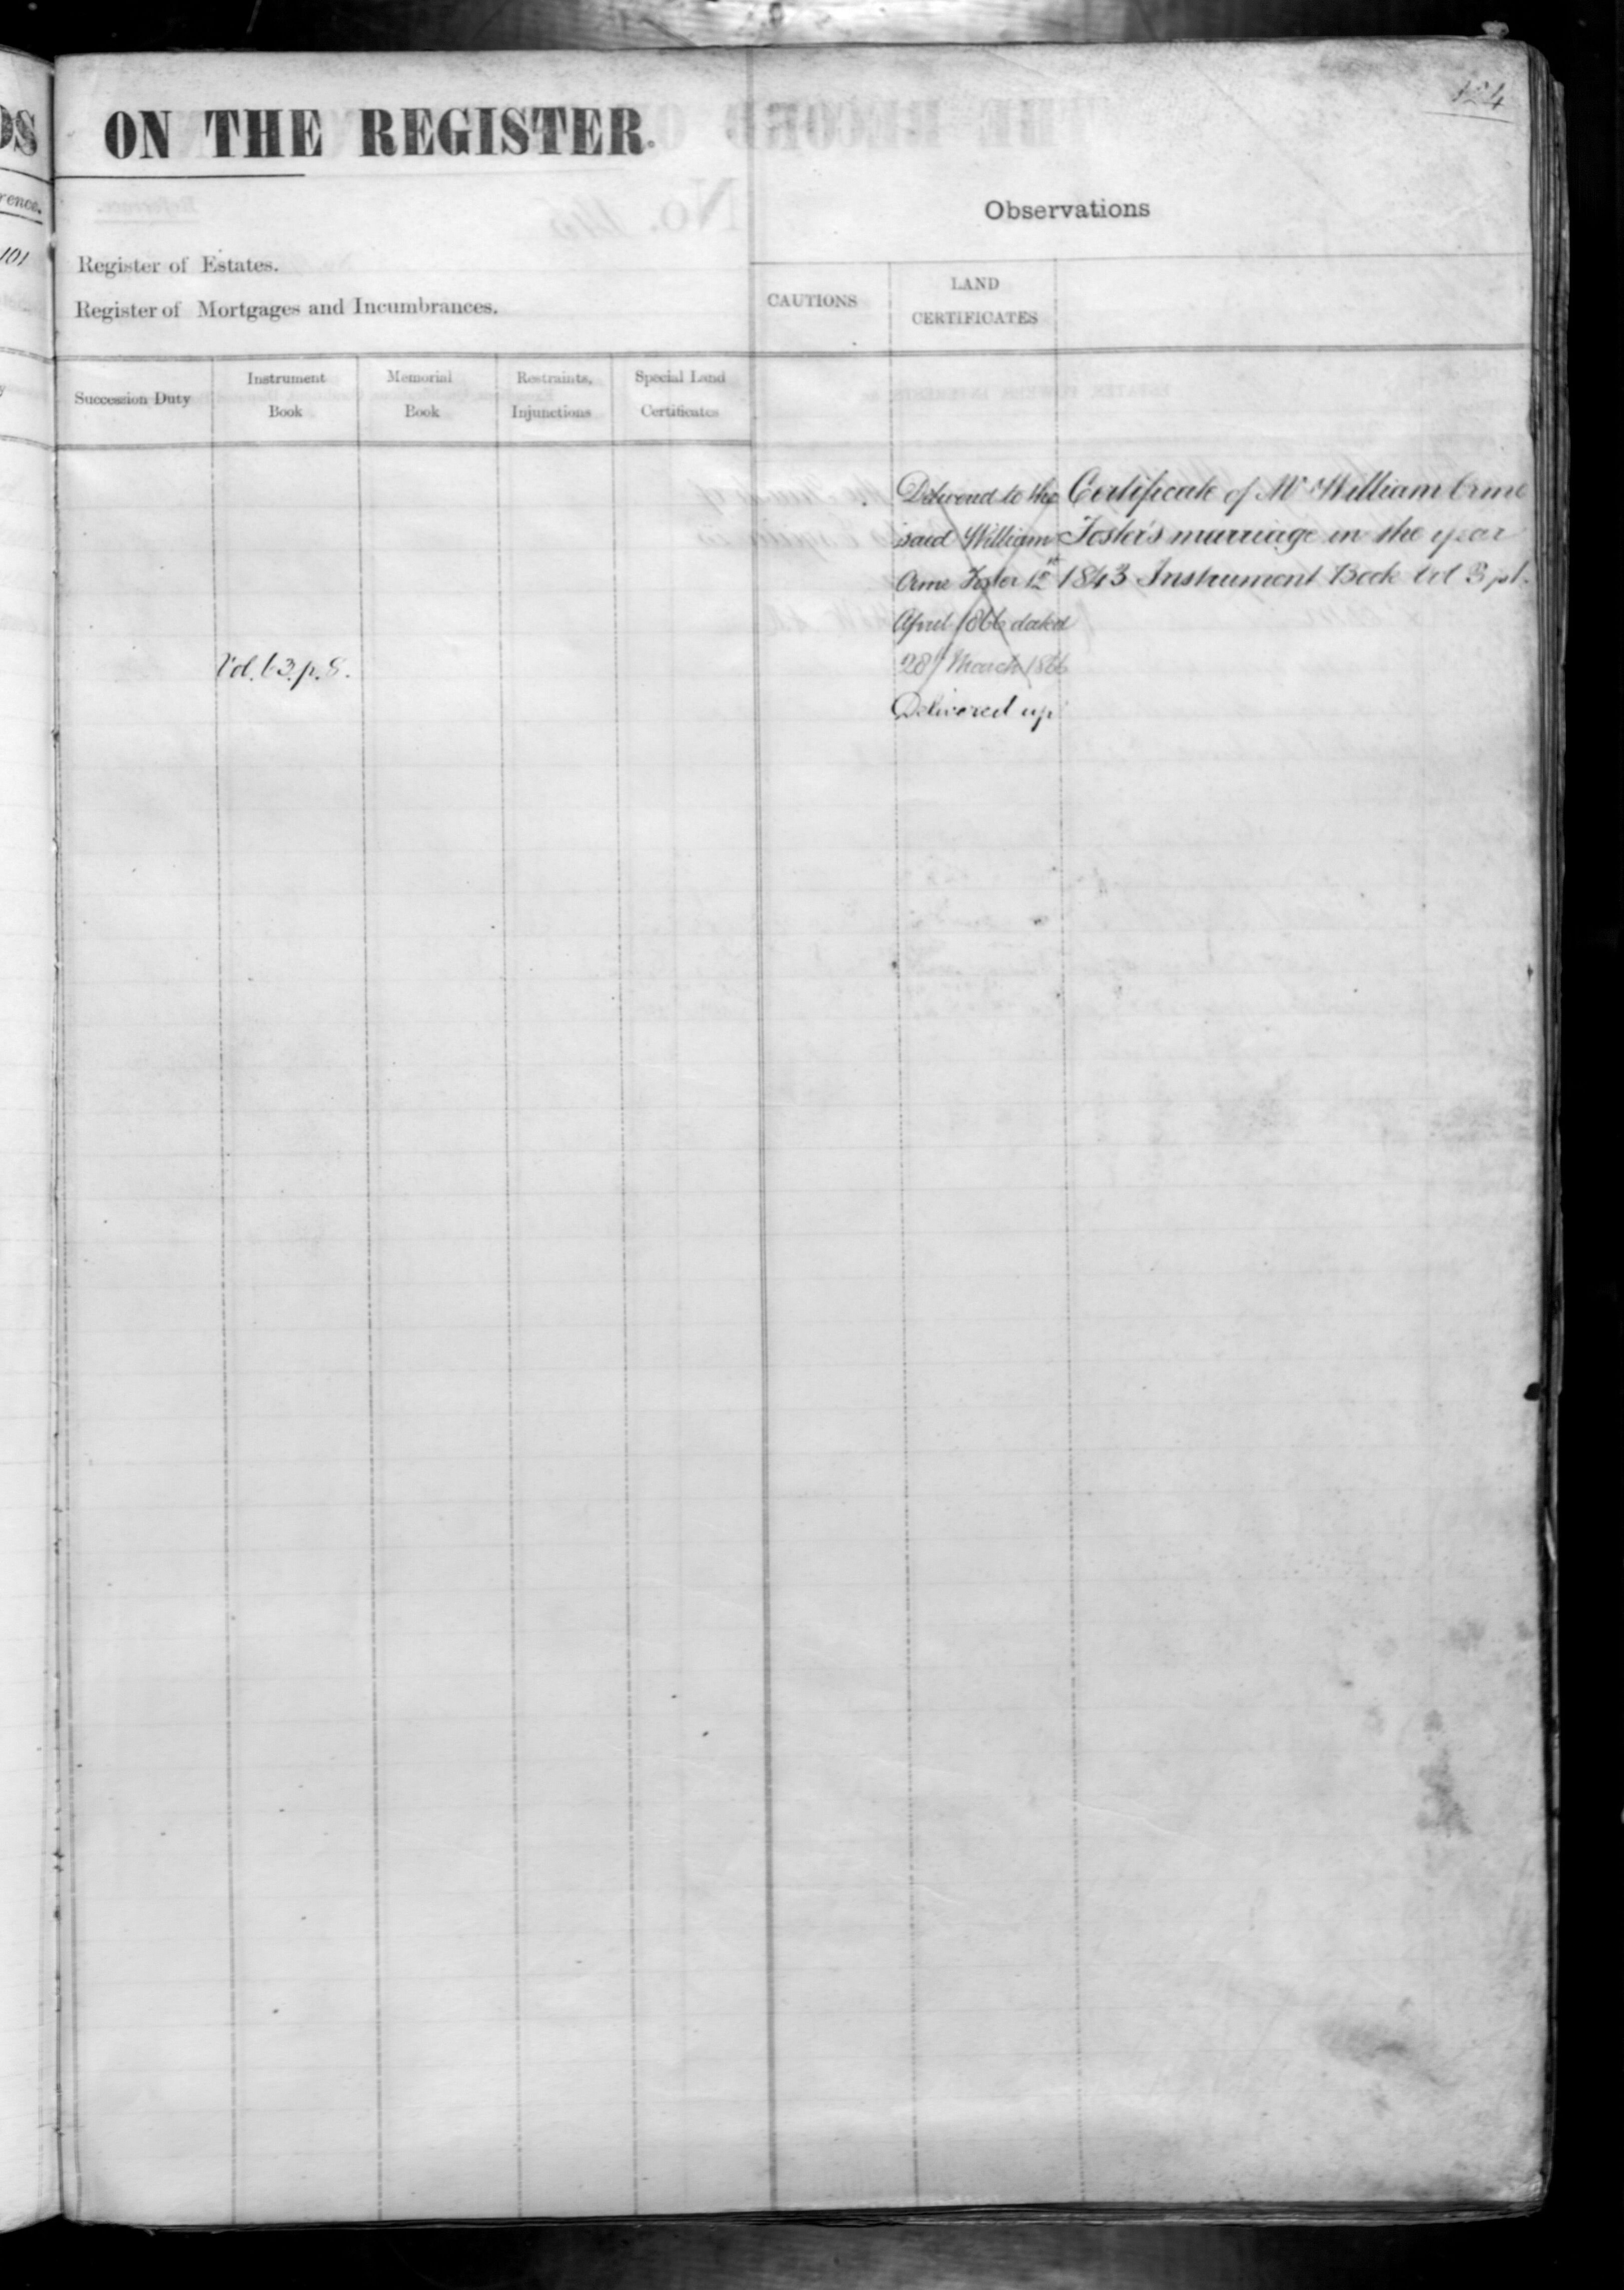 124
DS ON THE REGISTER.
Observations
rence.
101
Register of Estates.
Register of Mortgages and Incumbrances.
CAUTIONS
LAND
CERTIFICATES
Succession Duty
Instrument
Book
Memorial
Book
Restraints,
Injunctions
Special Land
Certificates
Delivered to the
said William
Orme Foster
April 1866 dated
28 March 1866
Delivered up
Certificate of Mr William Orme
Foster's marriage in the year
1843 Instrument Book Vol 3 p1.
Vol. 63. p. 8.